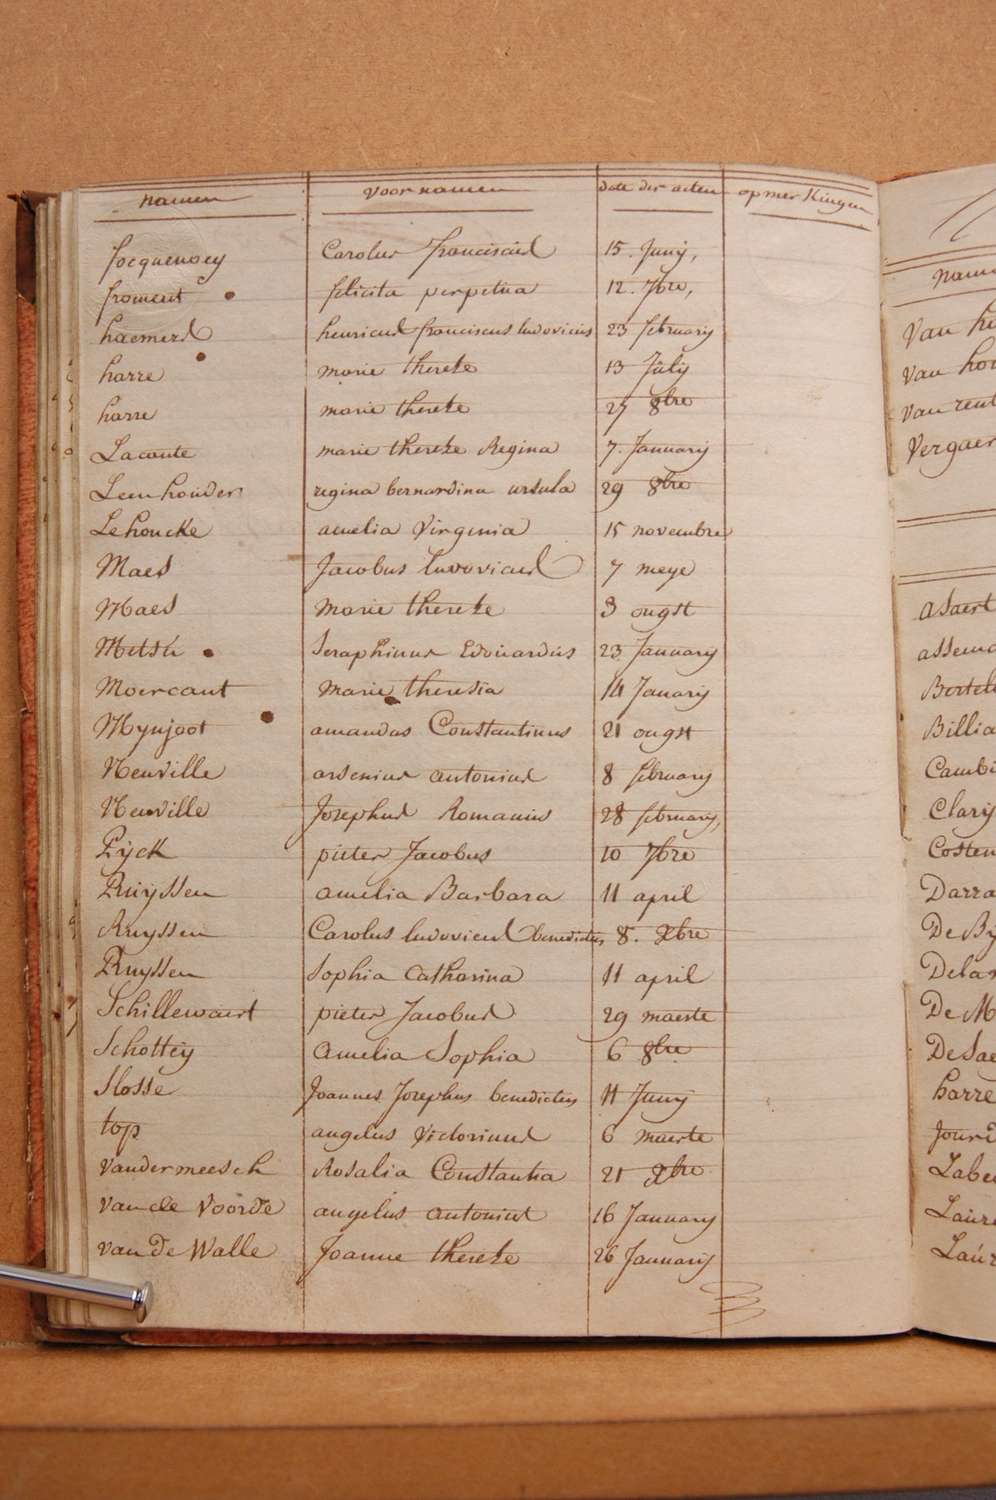 namen voornamen date der acten opmerkingen
focquenoey Carolus franciscus 15. Juny,
froment felicita perpetua 12. 7bre,
haemers henricus franciscus ludovicus 23 february
harre marie thereze 13 July
harre marie thereze 27 8bre
Lacante marie thereze Regina 7. January
Leenhouder regina bernardina ursula 29 8bre
Lehoucke amelia Virginia 15 novembre
Maes Jacobus ludovicus 7 meye
Maes Marie thereze 3 ougst
Metsu Seraphinus Edouardus 23 January
Moercant Marie theresia 14 January
Mynjoot amandus Constantinus 21 ougst
Neuville arsenius antonius 8 february
Neuville Josephus Romanus 28 february,
Pyck pieter Jacobus 10 7bre
Ruyssen amelia Barbara 11 april
Ruyssen Carolus ludovicus benedictus 8. xbre
Ruyssen Sophia Catharina 11 april
Schillewaert pieter Jacobus 29 maerte
Schottey Amelia Sophia 6 8bre
Slosse Joannes Josephus benedictus 11 Juny
top angelus Victorinus 6 maerte
Vandermeesch Rosalia Constantia 21 xbre
Van de Voorde angelus antonius 16 January
van De Walle Joanne thereze 26 January
Vergaer
asaert
Billia
Clary
Costen
Darra
De By
De M
De Sae
harre